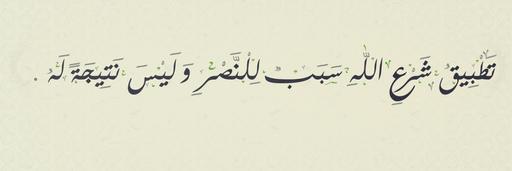 تَطْبِيقُ شَرعِ اللّهِ سَبَبٌ لِلْنَّصْرِ وَ لَيْسَ نَتِيجَةً لَهُ .